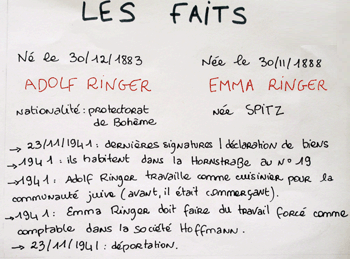 LES FAITS
Né le 30/12/1883
Née le 30/11/1888
ADOLF RINGER
EMMA RINGER
Nationalité : protectorat
de Bohème
née SPITZ
→ 23/11/1941 : dernières signatures / déclaration de biens
→ 1941 : ils habitent dans la Hornstraße au n° 19
→ 1941 : Adolf Ringer travaille comme cuisinier pour la
communauté juive (avant, il était commerçant).
→ 1941 : Emma Ringer doit faire du travail forcé comme
comptable dans la société Hoffmann.
→ 23/11/1941 : déportation.